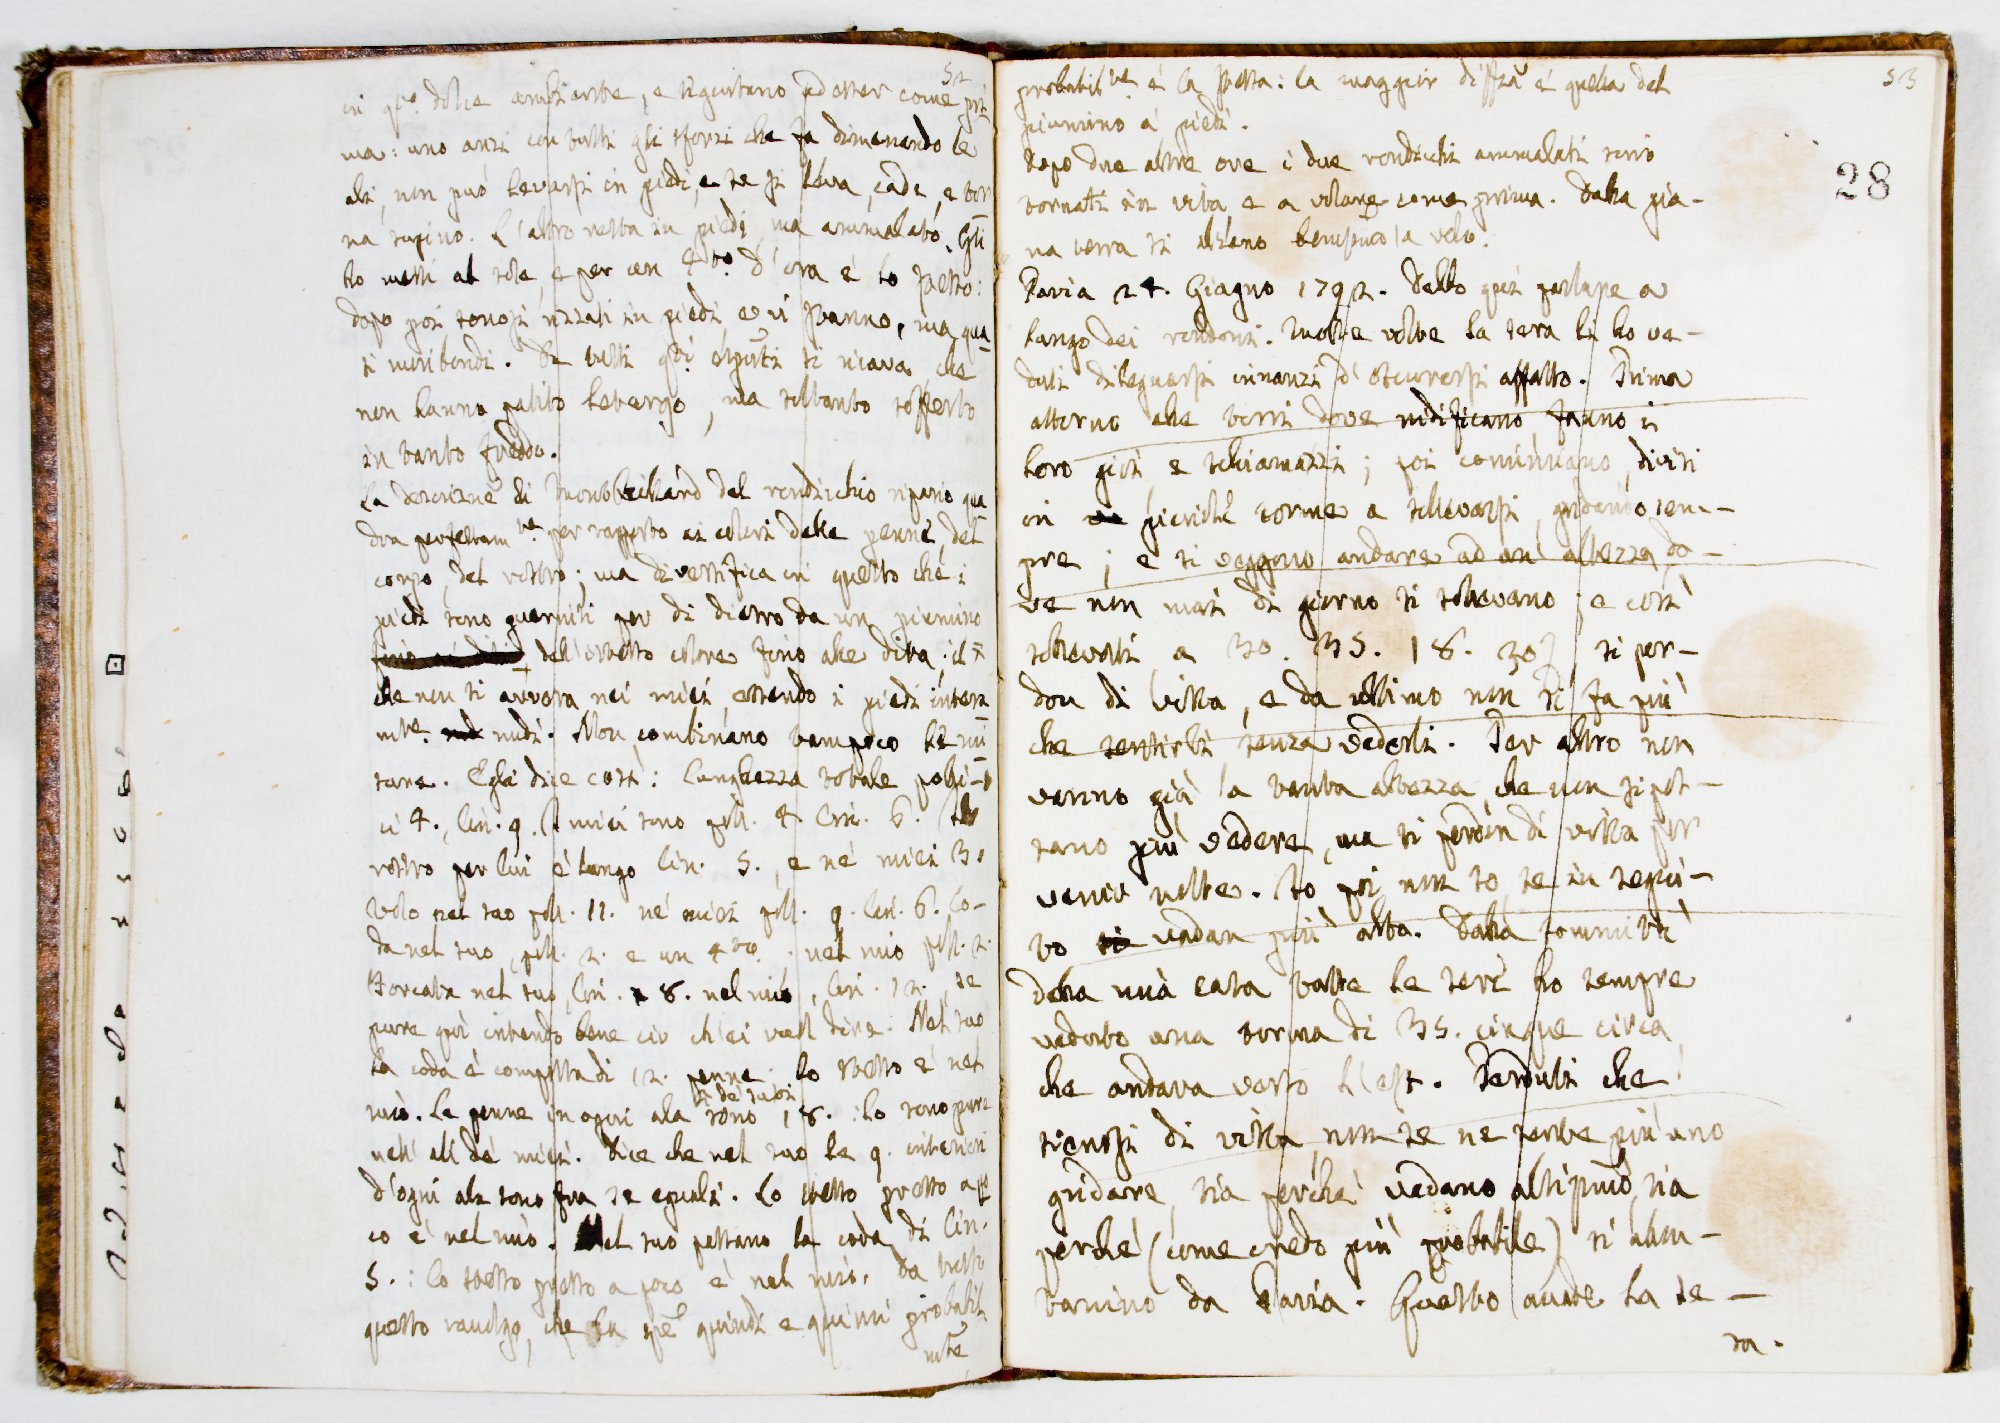 52
in q.to dolce ambiente, e seguitano ad esser come pri-
ma: uno anzi con tutti gli sforzi che fa dimenando le
ali, non può levarsi in piedi, e se si leva, cade, e tor-
na supino. L'altro resta in piedi, ma ammalato. Gli
ho messi al sole, e per un 4.to d'ora è lo stesso:
dopo poi sonosi rizzati in piedi, e vi stanno, ma qua-
si moribondi. Da tutti q.ti si ricava che
non hanno patito letargo, ma soltanto sofferto
un tanto freddo.
La descrizne di Montbeillard del rondicchio ripario qua-
dra perfettam.te per rapporto ai colori delle penne, del
corpo, del rostro; ma diversifica in questo che i
piedi sono guerniti per di dietro da un piumino
dell'istesso colore fino alle dita: il
che non si avvera nei miei, essendo i piedi intera-
m.te nudi. Non combinano tampoco le mi-
sure. Egli dice così: lunghezza totale polli-
ci 4., lin. 9. I miei sono poll. 4 lin. 6. Il
rostro per lui è lungo lin. 5., e ne' miei 3.
Volo nel suo poll. 11. ne' miei poll. 9. lin. 6. Co-
da nel suo, poll. 2. e un 4.to. nel mio poll. 2.
Forcata nel suo, lin. 8. nel mio, lin. 12., se
pure qui intendo bene ciò ch'ei vuol dire. Nel suo
la coda è composta di 12. penne: lo stesso è nel
mio. Le penne in ogni ala de' suoi sono 18.: lo sono pure
nell'ali de' miei. Dice che nel suo le 9. interiori
d'ogni ala sono fra se eguali. Lo stesso presso a po-
co è nel mio. Nel suo passano la coda di lin.
5.: lo stesso presso a poco è nel mio. Da tutto
questo raccolgo, che la spe quindi e quinci probabil-
m.te
53
28
probabil.te è la stessa: la maggior diffza è quella del
piumino a' piedi.
Dopo due altre ore i due rondicchi ammalati sono
tornati in vita e a volare come prima. Dalla pia-
na terra si alzano benissimo a volo.
Pavia 24. Giugno 1792. Dello qui parlare a
lungo dei rondoni. Molte volte la sera li ho ve-
duti dileguarsi innanzi d'oscurarsi affatto. Prima
attorno alle torri dove nidificano fanno i
loro giri e schiamazzi; poi cominciano, divisi
in picciole torme a sollevarsi, gridando sem-
pre; e si veggono andare ad un'altezza do-
ve non mai di giorno si sollevano; e così
sollevati a 30. 35. 18. 20, si per-
don di vista, e da ultimo non si fa più
che sentirli, senza vederli. Per altro non
vanno già a tanta altezza, che non si pos-
sano più vedere, ma si perdon di vista per
venir notte. Io poi non so, se in segui-
to vadan più alto. Dalla sommità
della mia casa tutte le sere ho sempre
veduto una torma di 35. cinque circa
che andava verso l'est. Perduti che
sienosi di vista, non se ne sente più uno
gridare, sia perché vadano altissimo, sia
perché (come credo più probabile) si allon-
tanino da Pavia. Questo avvene la se-
ra.